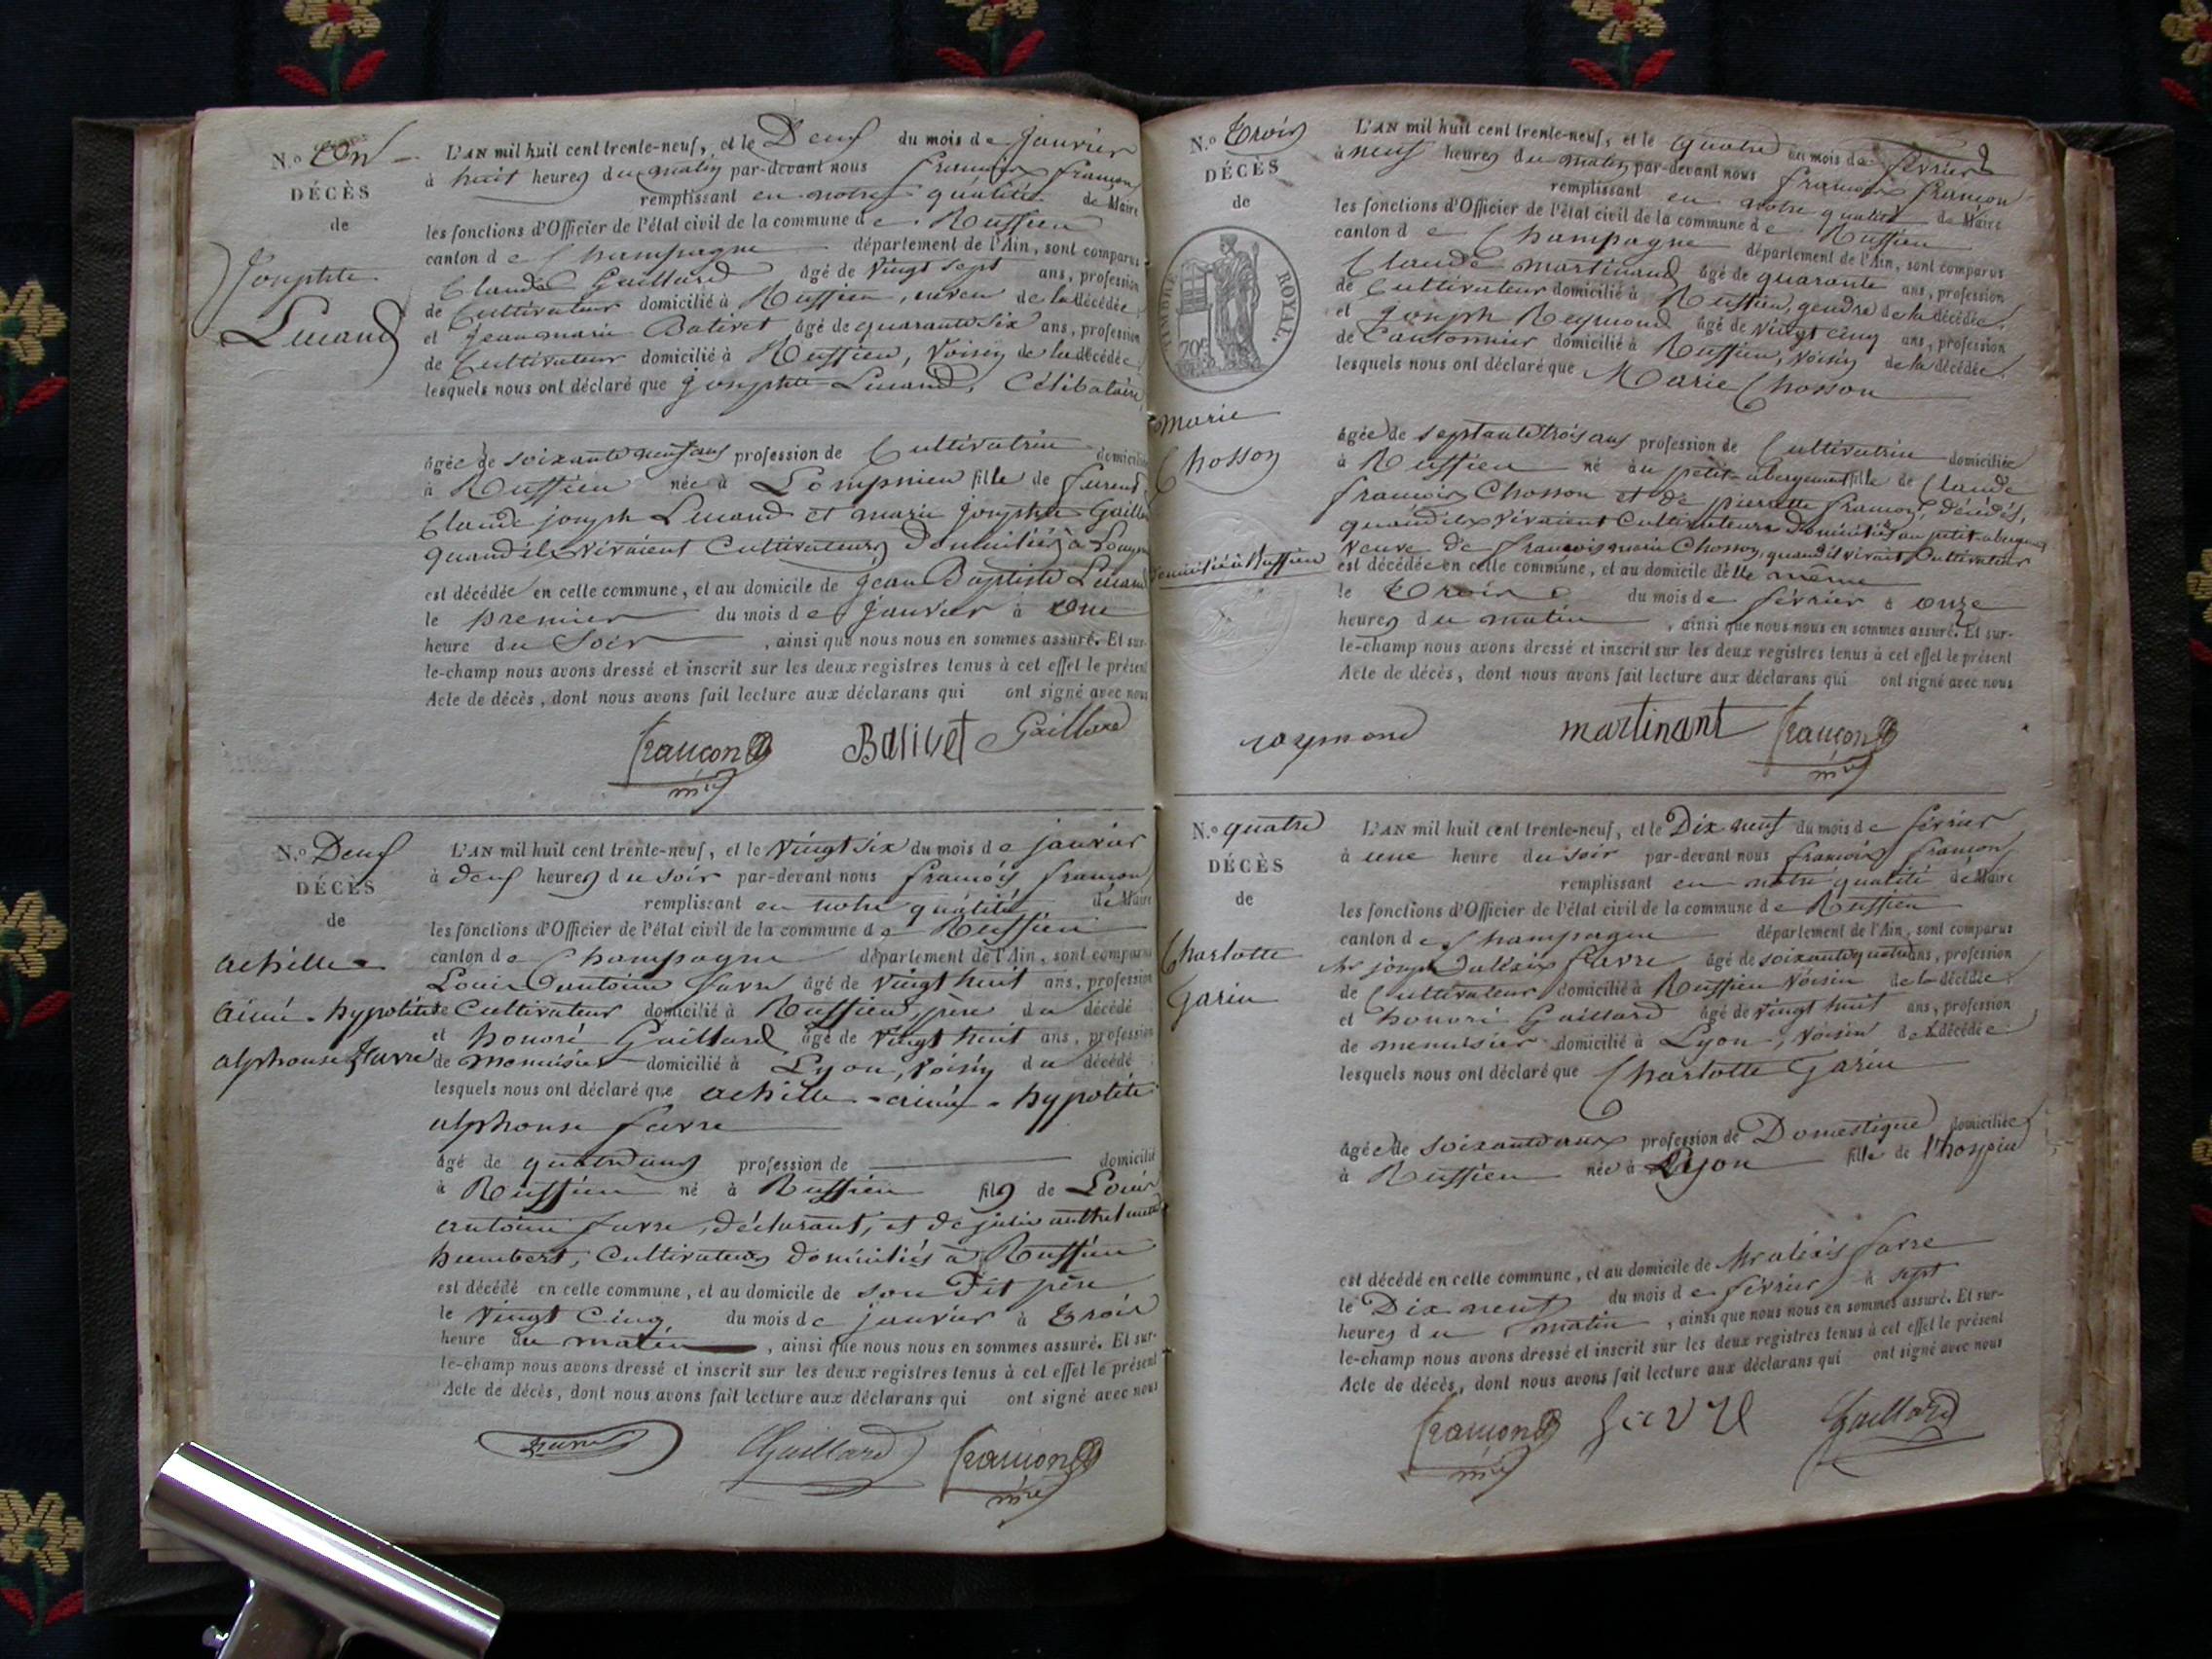 N.o Un
DÉCÈS
de
Josephte
Lucand
L'AN mil huit cent trente-neuf, et le Deux du mois de janvier
à huit heures du matin par-devant nous françois françon
remplissant en notre qualité de Maire
les fonctions d'Officier de l'état civil de la commune de Ruffieu
canton de Champagne département de l'Ain, sont comparus
Claude Gaillard âgé de vingt sept ans, profession
de Cultivateur domicilié à Ruffieu, neveu de la décédée
et jeanmarie Balivet âgé de quarante six ans, profession
de Cultivateur domicilié à Ruffieu, Voisin de la décédée
lesquels nous ont déclaré que josephte Lucand, Célibataire
âgée de soixante neuf ans profession de Cultivatrice domiciliée
à Ruffieu née à Lompnieu fille de furent
Claude joseph Lucand et marie josephte Gaillard
quand ils vivaient Cultivateurs domiciliés à
est décédée en cette commune, et au domicile de jean Baptiste Lucand
le premier du mois de janvier à une
heure du Soir, ainsi que nous nous en sommes assuré. Et sur-
le-champ nous avons dressé et inscrit sur les deux registres tenus à cet effet le présent
Acte de décès, dont nous avons fait lecture aux déclarans qui ont signé avec nous
françon Balivet Gaillard
mre
N.o Deux
DÉCÈS
de
achille
aimé - hypolite
alphonse favre
L'AN mil huit cent trente-neuf, et le Vingt six du mois de janvier
à deux heures du soir par-devant nous françois françon
remplissant en notre qualité de Maire
les fonctions d'Officier de l'état civil de la commune de Ruffieu
canton de Champagne département de l'Ain, sont comparus
Louis antoine favre âgé de Vingt huit ans, profession
de Cultivateur domicilié à Ruffieu, père du décédé
et honoré Gaillard âgé de Vingt huit ans, profession
de menuisier domicilié à Lyon, Voisin du décédé
lesquels nous ont déclaré que achille - aimé - hypolite
alphonse favre
âgé de quatre ans profession de domicilié
à Ruffieu né à Ruffieu fils de Louis
antoine favre, déclarant, et de julie
humbert, Cultivateurs domiciliés à Ruffieu
est décédé en cette commune, et au domicile de son Dit père
le Vingt Cinq du mois de janvier à trois
heure du matin, ainsi que nous nous en sommes assuré. Et sur-
le-champ nous avons dressé et inscrit sur les deux registres tenus à cet effet le présent
Acte de décès, dont nous avons fait lecture aux déclarans qui ont signé avec nous
favre Gaillard françon
mre
N.o Trois
DÉCÈS
de
TIMBRE ROYAL.
70c
marie
Chosson
domiciliée à Ruffieu
L'AN mil huit cent trente-neuf, et le quatre du mois de février
à neuf heures du matin par-devant nous françois françon
remplissant en notre qualité de Maire
les fonctions d'Officier de l'état civil de la commune de Ruffieu
canton de Champagne département de l'Ain, sont comparus
Claude martinand âgé de quarante ans, profession
de Cultivateur domicilié à Ruffieu, gendre de la décédée,
et joseph Reymond âgé de vingt cinq ans, profession
de Cantonnier domicilié à Ruffieu, Voisin de la décédée
lesquels nous ont déclaré que Marie Chosson
âgée de septante trois ans profession de Cultivatrice domiciliée
à Ruffieu né au petit-abergement fille de Claude
françois Chosson et de pierrette françon, décédés,
quand ils vivaient Cultivateurs domiciliés au petit-abergement
veuve de françois marie Chosson, quand il vivait Cultivateur
est décédée en cette commune, et au domicile d'elle même
le Trois du mois de février à onze
heures du matin, ainsi que nous nous en sommes assuré. Et sur-
le-champ nous avons dressé et inscrit sur les deux registres tenus à cet effet le présent
Acte de décès, dont nous avons fait lecture aux déclarans qui ont signé avec nous
raymond martinant françon
mre
N.o quatre
DÉCÈS
de
Charlotte
Garin
L'AN mil huit cent trente-neuf, et le Dix neuf du mois de février
à une heure du soir par-devant nous françois françon
remplissant en notre qualité de Maire
les fonctions d'Officier de l'état civil de la commune de Ruffieu
canton de Champagne département de l'Ain, sont comparus
Mr joseph alexis favre âgé de soixante quatre ans, profession
de Cultivateur domicilié à Ruffieu Voisin de la décédée
et honoré Gaillard âgé de vingt huit ans, profession
de menuisier domicilié à Lyon, Voisin de la décédée
lesquels nous ont déclaré que Charlotte Garin
âgée de soixante ans profession de Domestique domiciliée
à Ruffieu née à Lyon fille de l'hospice
est décédé en cette commune, et au domicile de Mr alexis favre
le Dix neuf du mois de février à sept
heures du matin, ainsi que nous nous en sommes assuré. Et sur-
le-champ nous avons dressé et inscrit sur les deux registres tenus à cet effet le présent
Acte de décès, dont nous avons fait lecture aux déclarans qui ont signé avec nous
françon favre Gaillard
mre